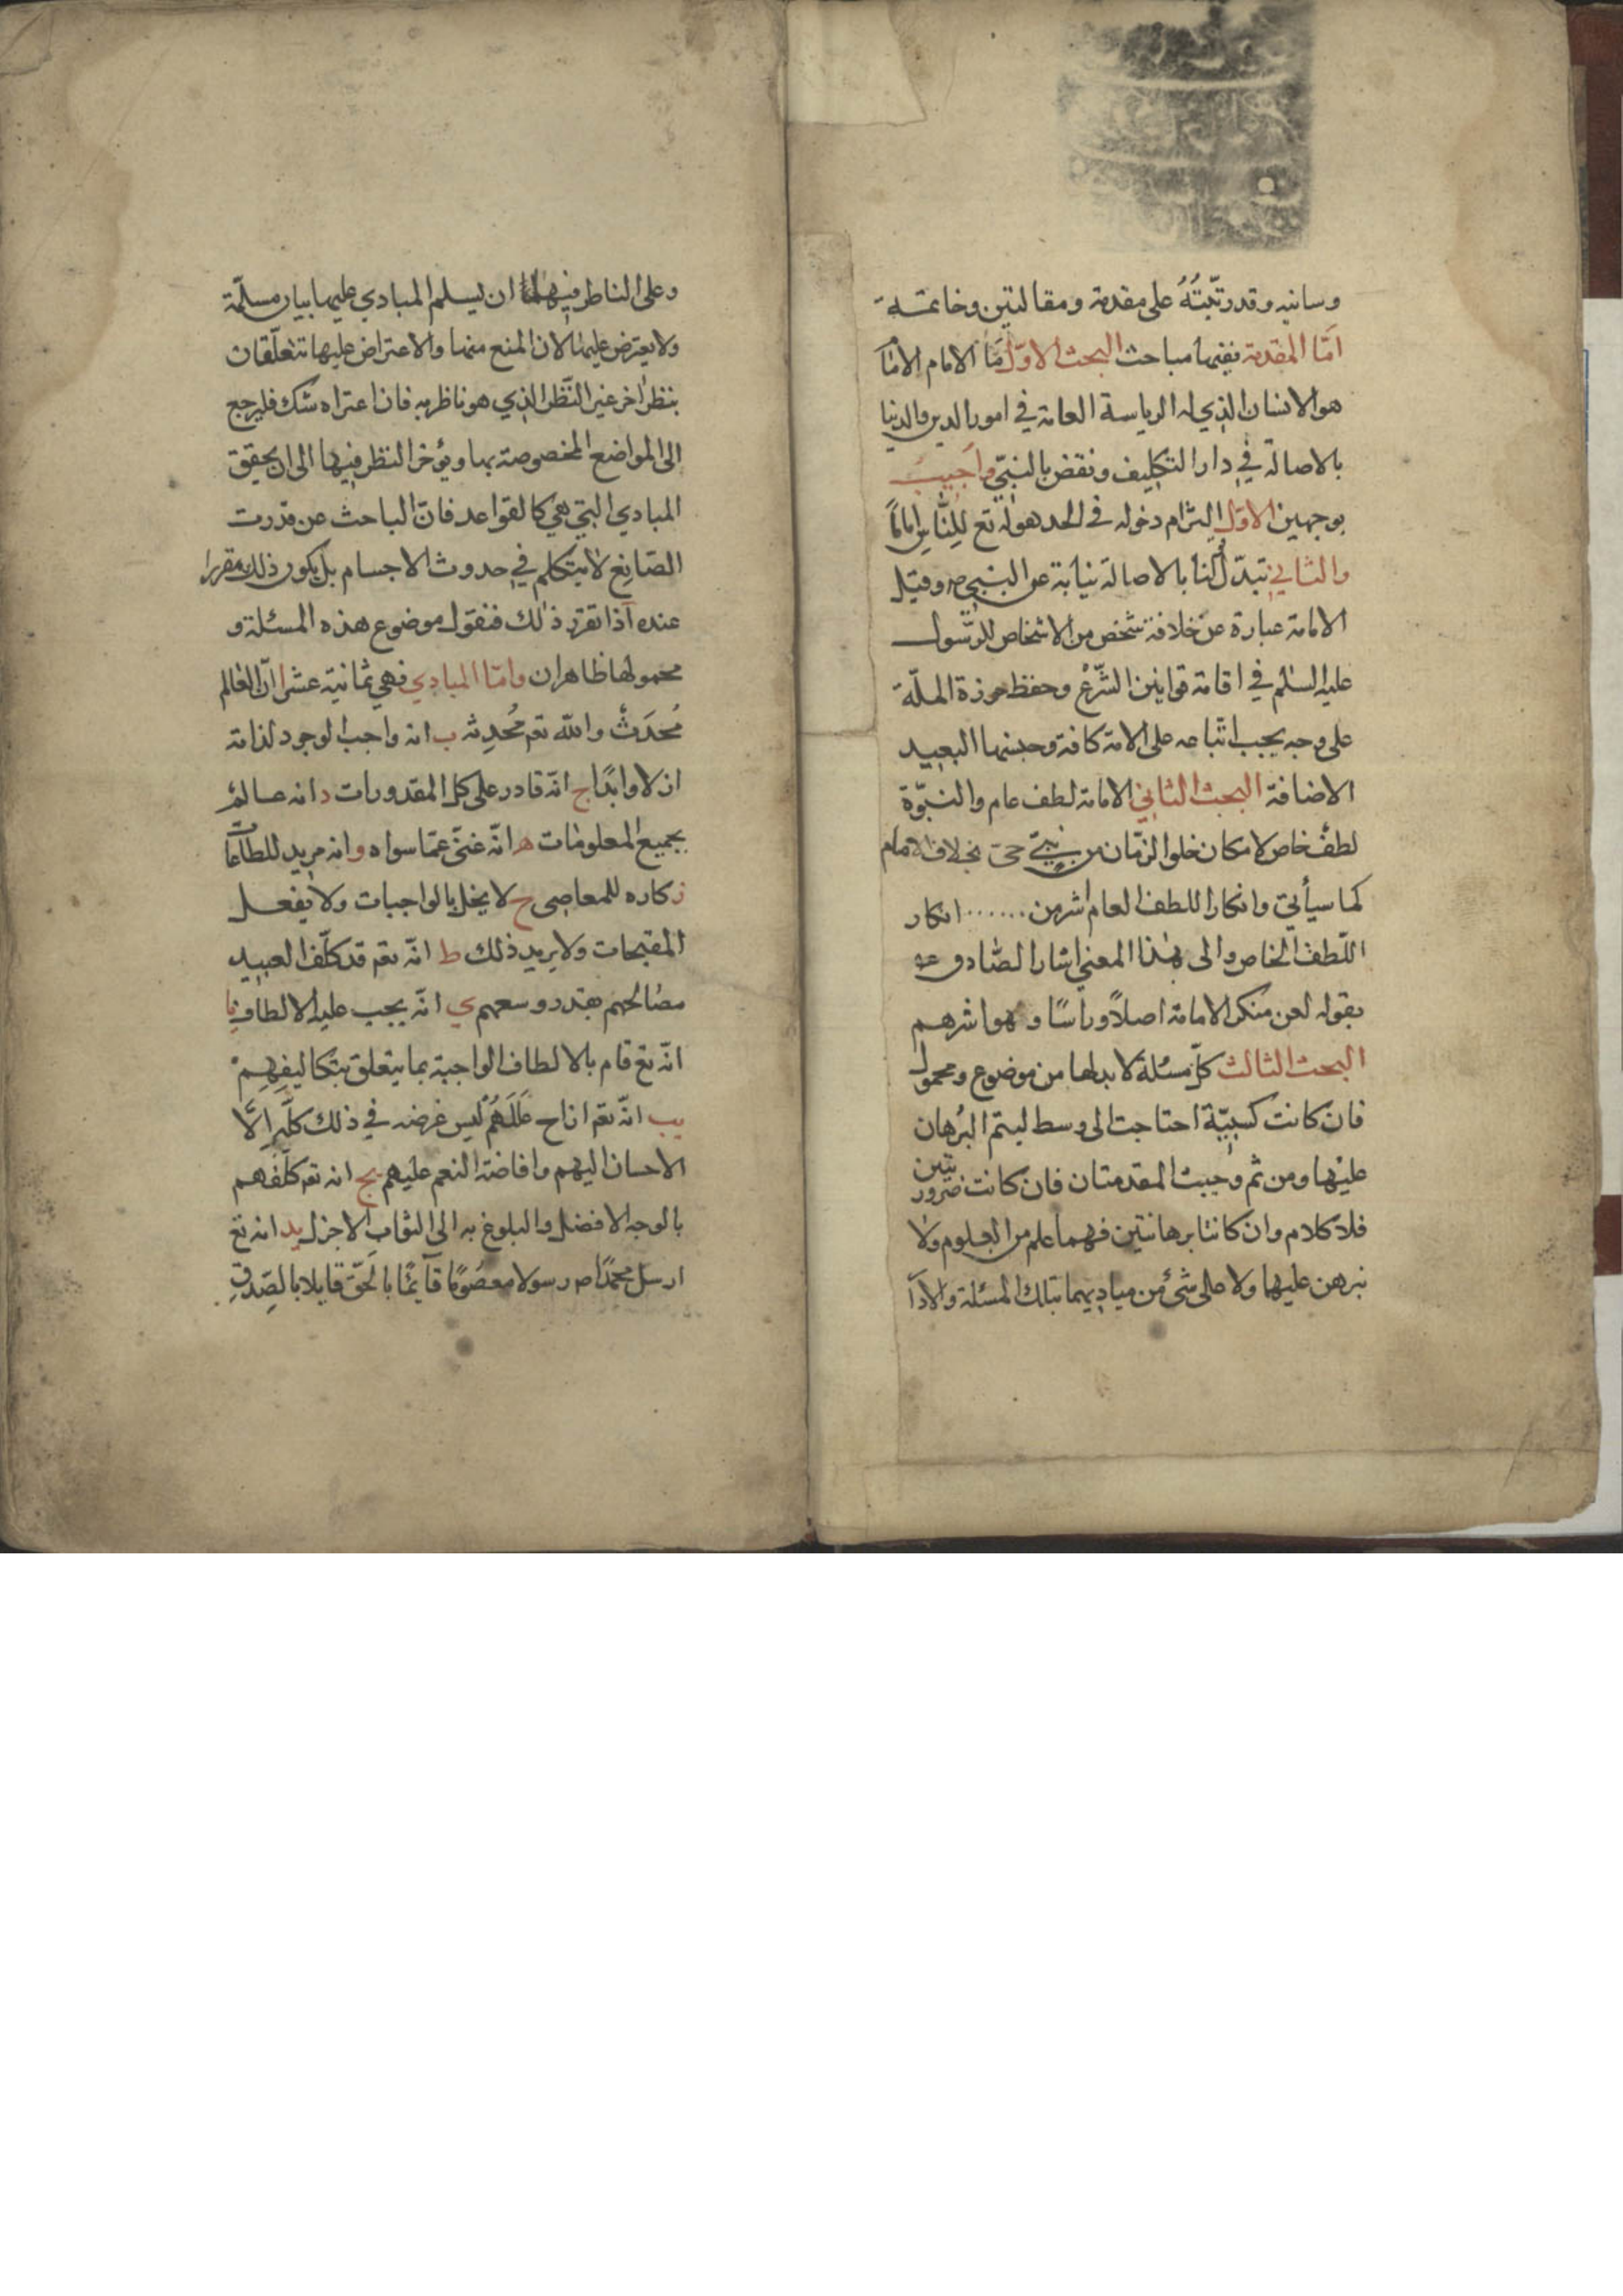 وسانيه وقد رتّبتُهُ على مقدمة ومقالتين وخاتمة
امّا المقدمة ففيها مباحث البحث الاوّل ما الامام الامام
هو الانسان الذي له الرياسة العامة في امور الدين والدنيا
بالاصالة في دار التكليف ونقض بالنبيّ واجيب
بوجهين الاوّل التزام دخوله في الحد لقوله تع للنّاس اماماً
والثاني تبدّل لنا بالاصالة نيابة عن النبي ص وقيل
الامامة عبارة عن خلافة شخص من الاشخاص للرّسول
عليه السلم في اقامة قوانين الشّرع وحفظ حوزة الملّة
على وجه يجب اتّباعه على الامة كافة وجنسها البعيد
الاضافة البحث الثاني الامامة لطف عام والنبوّة
لطف خاص لامكان خلو الزمان من نبيّ حيّ بخلاف الامام
كما سيأتي وانكار اللطف العام اشر من ...... انكار
اللّطف الخاص والى هذا المعنى اشار الصّادق عه
بقوله لعن منكر الامامة اصلاً وراسًا وهو اشرهم
البحث الثالث كلّ مسئلة لابد لها من موضوع ومحمول
فان كانت كسبيّة احتاجت الى وسط ليتم البُرهان
عليها ومن ثم وجبت المقدمتان فان كانت ضروريتين
فلا كلام وان كانتا برهانتين فهما علم من العلوم ولا
نبرهن عليها ولا على شئ من مباديهما بتلك المسئلة والا دار
وعلى الناظر فيهما ان يسلم المبادي عليها ببيان مسلّمة
ولا يعترض عليها لان المنع منها والاعتراض عليها تتعلّقان
بنظر اخر غير النّظر الذي هو ناظر به فان اعتراه شك فليرجع
الى المواضع المخصوصة بها ويؤخر النظر فيها الى ان يحقق
المبادي التي هي كالقواعد فانّ الباحث عن قدرت
الصّانع لا يتكلم في حدوث الاجسام بل يكون ذلك مقررا
عنده اذا تقرّر ذلك فنقول موضوع هذه المسئلة و
محمولها ظاهران وامّا المبادي فهي ثمانية عشر ا انّ العالم
مُحدَثٌ والله تعم مُحدِثه ب انه واجب الوجود لذاته
ازلا وابدًا ج انّه قادر على كل المقدورات د انه عالم
بجميع المعلومات ه انّه غنيّ عمّا سواه و انه مريد للطّاعات
ز كاره للمعاصي ح لا يخل بالواجبات ولا يفعل
المقبحات ولا يريد ذلك ط انّه تعم قد كلّف العبيد
مصالحهم بقدر وسعهم ي انّه يجب عليه الالطاف يا
انّه تع قام بالالطاف الواجبة بما يتعلق بتكاليفهم
يب انّه تعم ازاح عللهم ليس غرضه في ذلك كلّه الّا
الاحسان اليهم وافاضة النعم عليهم يج انه تعم كلّفهم
بالوجه الافضل والبلوغ به الى الثواب الاجزل يد انه تع
ارسل محمدًا ص رسولا معصومًا قائمًا بالحقّ قايلا بالصّدق